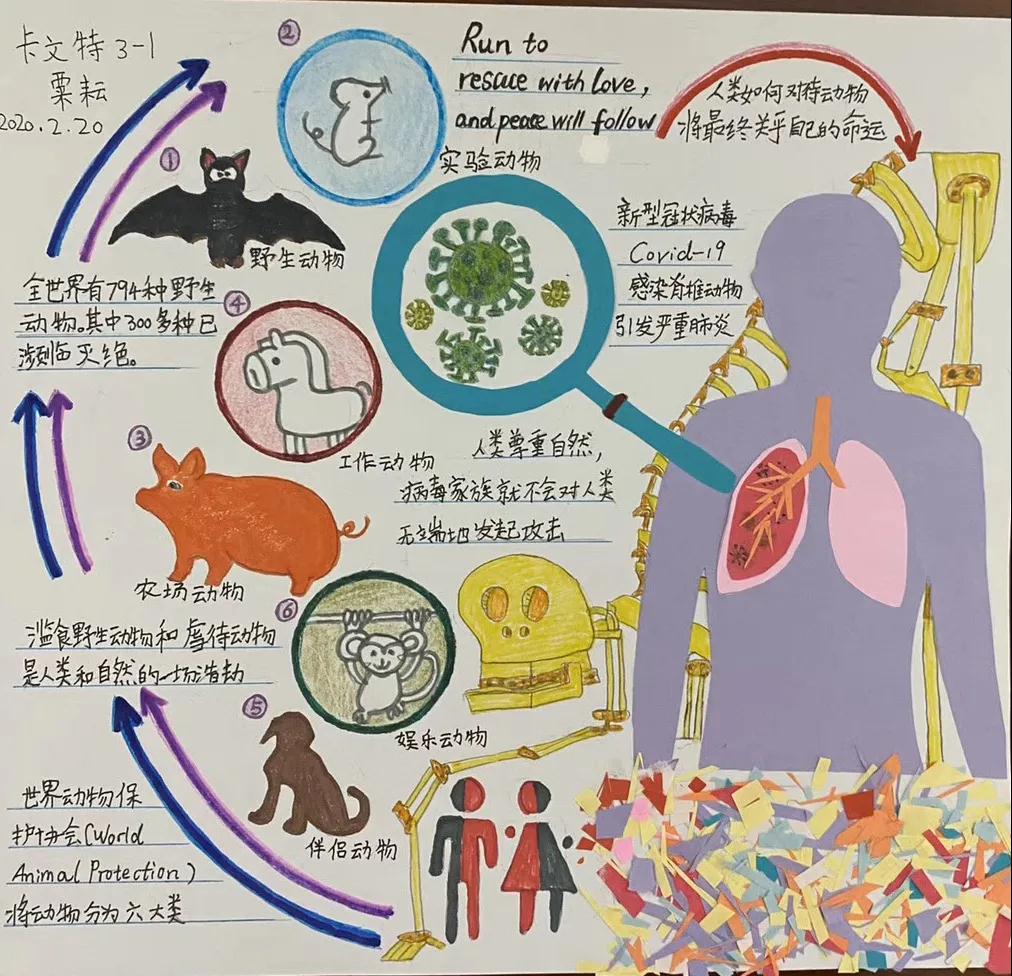 卡文特3-1
粟耘
2020.2.20
②
Run to
rescue with Love,
and peace will follow
实验动物
人类如何对待动物
将最终关乎自己的命运
①
野生动物
新型冠状病毒
Covid-19
感染脊椎动物
引发严重肺炎
全世界有794种野生
动物。其中300多种已
濒临灭绝。
④
工作动物
人类尊重自然，
病毒家族就不会对人类
无端地发起攻击
③
农场动物
滥食野生动物和虐待动物
是人类和自然的一场浩劫
⑥
娱乐动物
⑤
伴侣动物
世界动物保
护协会(World
Animal Protection)
将动物分为六大类